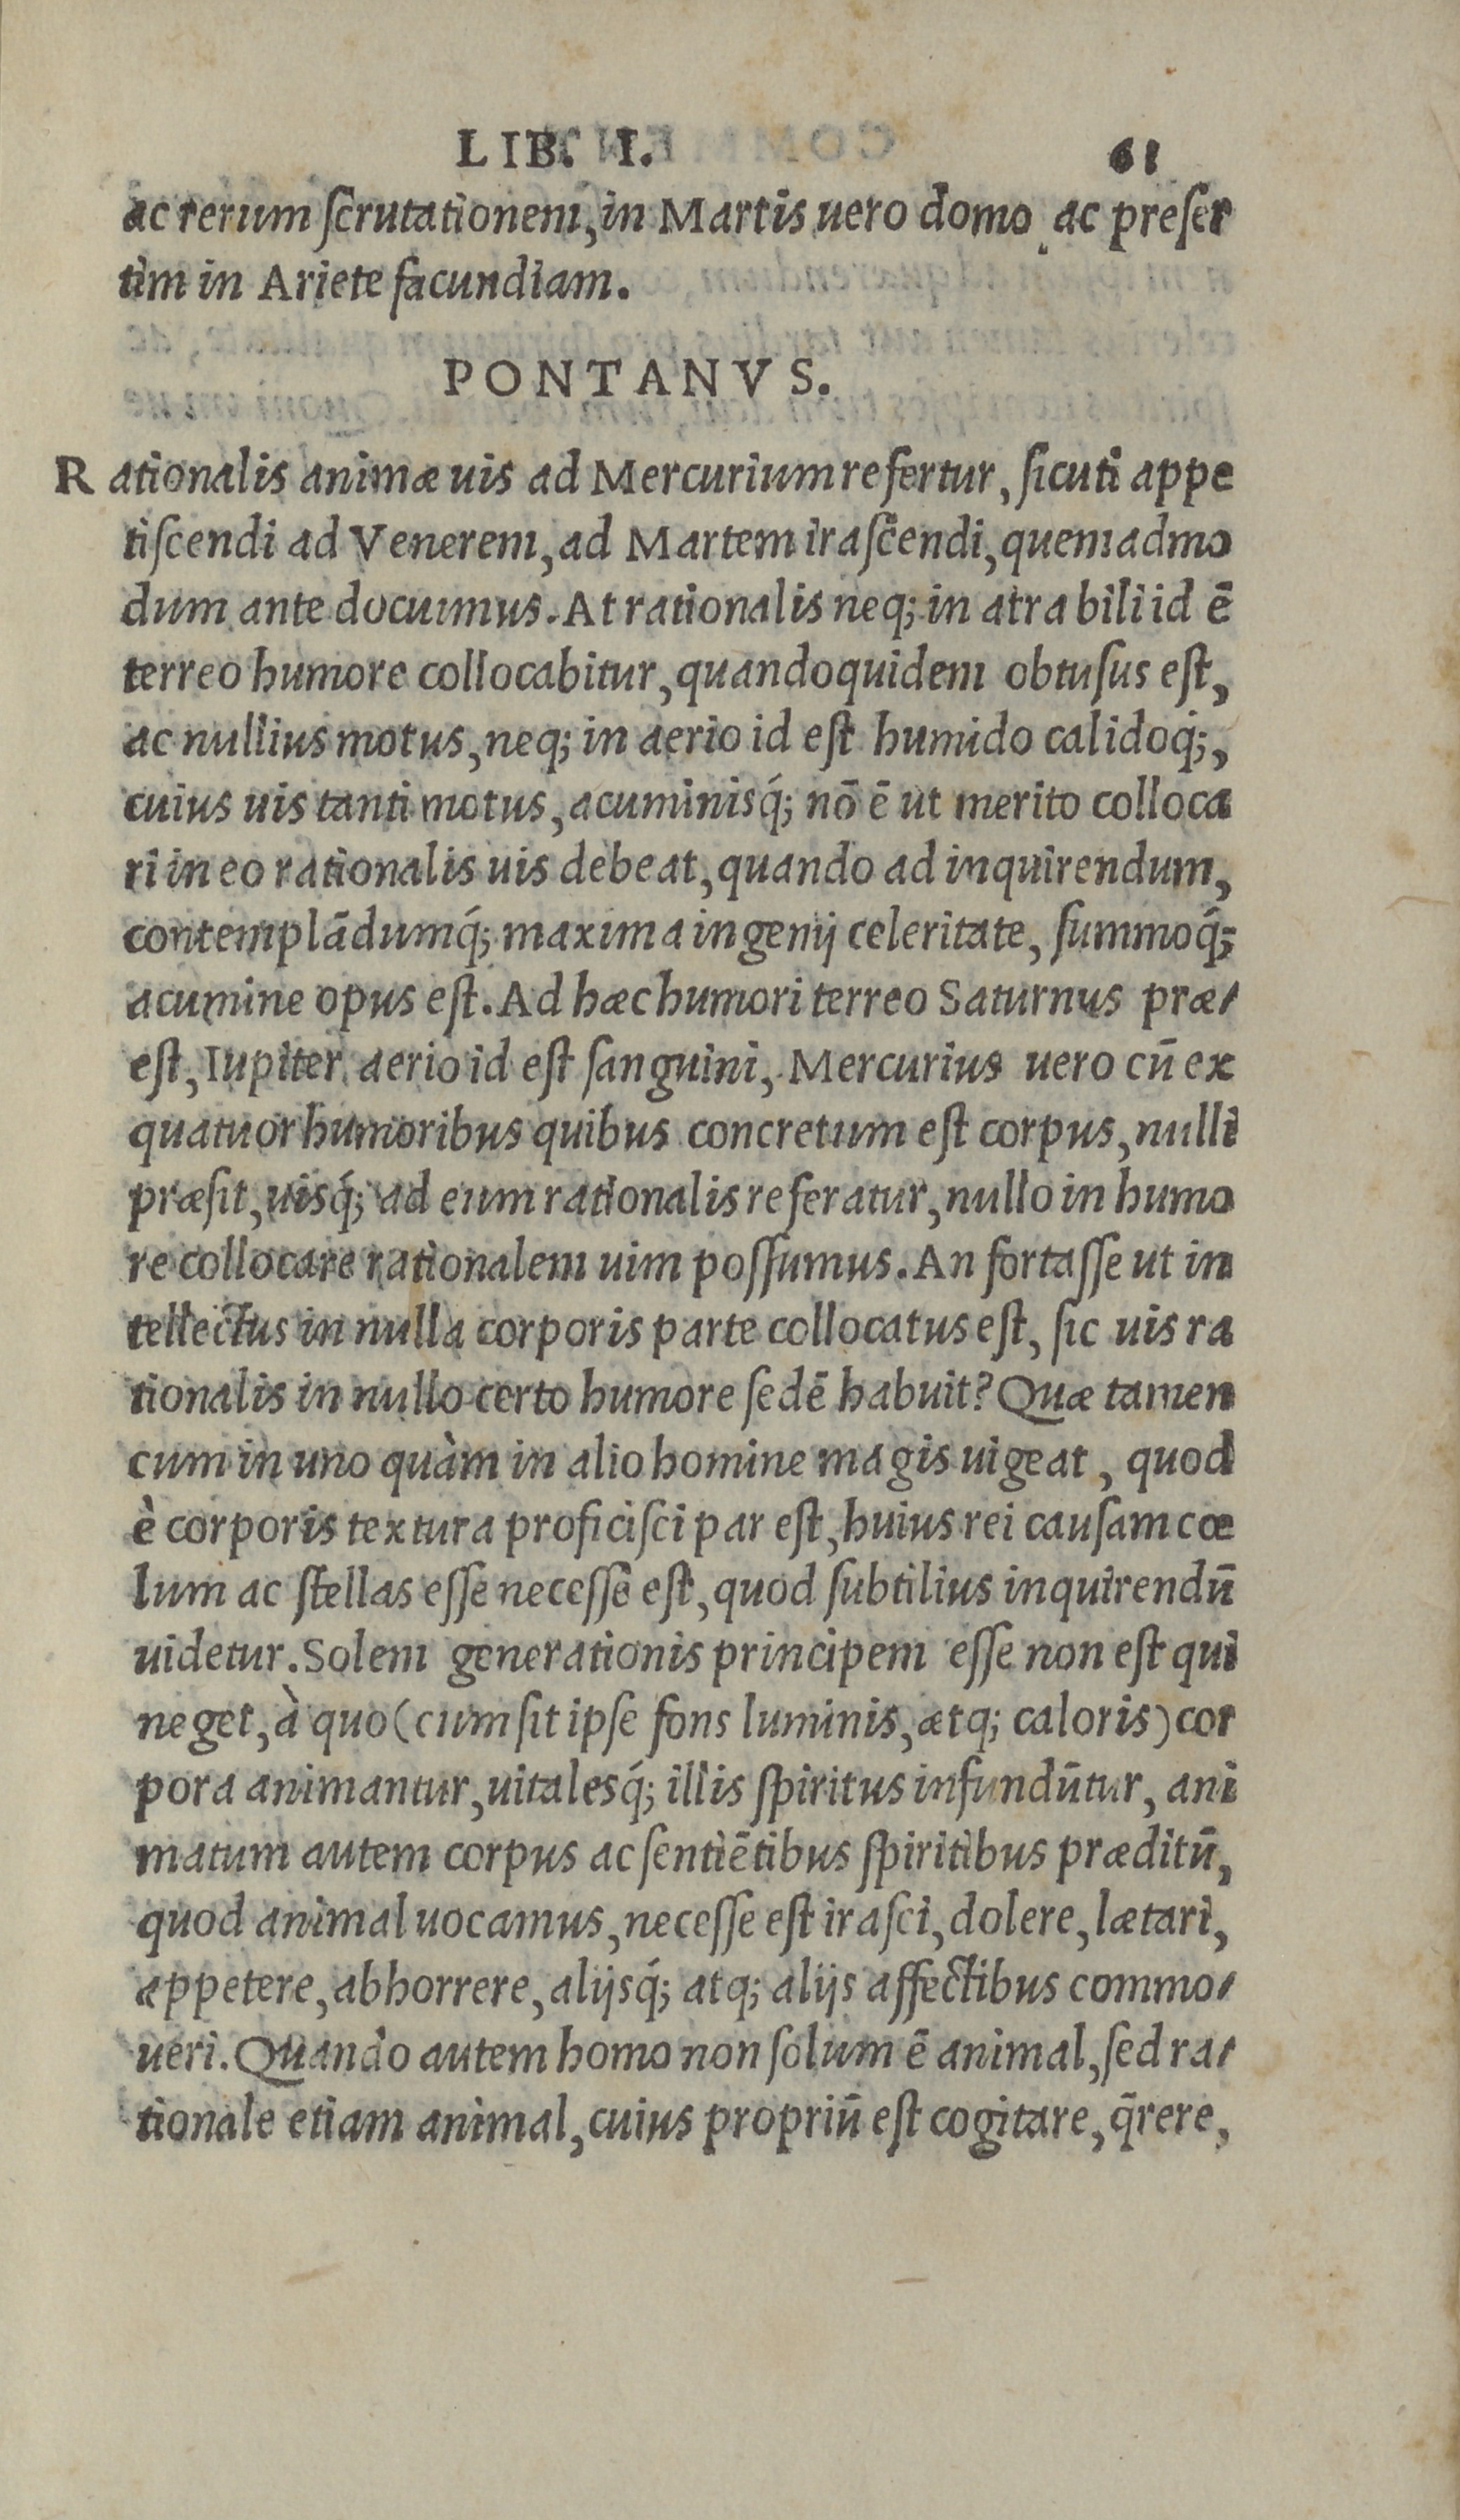 LIB. I. 61
ac rerum ſcrutationem, in Martis uero domo ac preſer
tim in Ariete facundiam.
PONTANVS.
Rationalis animæ uis ad Mercurium refertur, ſicuti appe
tiſcendi ad Venerem, ad Martem iraſcendi, quemadmo
dum ante docuimus. At rationalis neq; in atra bili id ē
terreo humore collocabitur, quandoquidem obtuſus eſt,
ac nullius motus, neq; in aerio id eſt humido calidoq́;,
cuius uis tanti motus, acuminisq́; nō ē ut merito colloca
ri in eo rationalis uis debeat, quando ad inquirendum,
contemplādumq́; maxima ingenij celeritate, ſummoq́;
acumine opus eſt. Ad hæc humori terreo Saturnus præ-
eſt, Iupiter aerio id eſt ſanguini, Mercurius uero cū ex
quatuor humoribus quibus concretum eſt corpus, nulli
præſit, uisq́; ad eum rationalis referatur, nullo in humo
re collocare rationalem uim poſſumus. An fortaſſe ut in
tellectus in nulla corporis parte collocatus eſt, ſic uis ra
tionalis in nullo certo humore ſedē habuit? Quæ tamen
cum in uno quàm in alio homine magis uigeat, quod
è corporis textura proficiſci par eſt, huius rei cauſam cœ
lum ac ſtellas eſſe neceſſe eſt, quod ſubtilius inquirendū
uidetur. Solem generationis principem eſſe non eſt qui
neget, à quo (cum ſit ipſe fons luminis, ætq; caloris) cor
pora animantur, uitalesq́; illis ſpiritus infundūtur, ani
matum autem corpus ac ſentiētibus ſpiritibus præditū,
quod animal uocamus, neceſſe eſt iraſci, dolere, lætari,
appetere, abhorrere, alijsq́; atq; alijs affectibus commo-
ueri. Quando autem homo non ſolum ē animal, ſed ra-
tionale etiam animal, cuius propriū eſt cogitare, q̄rere,